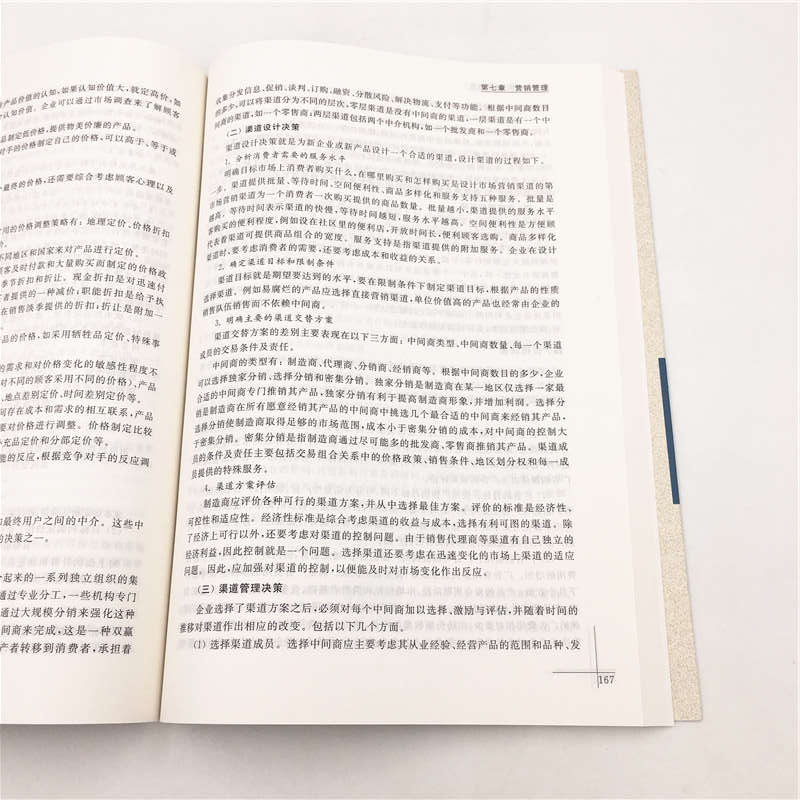 产品价值的认知，如果认知价值大，就定高价，如
认知价值。企业可以通过市场调查来了解顾客
品制定低价格，提供物美价廉的产品。
对手的价格制定自己的价格，可以高于、等于或
最终的价格，还需要综合考虑顾客心理以及
间的价格调整策略有：地理定价、价格折扣
价。
不同地区和国家来对产品进行定价。
顾客及时付款和大量购买而制定的价格政
季节折扣和折让。现金折扣是对迅速付
者提供的一种减价；职能折扣是给予执
在销售淡季提供的折扣；折让是附加一
品的价格，如采用牺牲品定价、特殊事
的需求和对价格变化的敏感性程度不
对不同的顾客采用不同的价格）、产品
、地点差别定价、时间差别定价等。
间存在成本和需求的相互联系，产品
要对价格进行调整。价格制定比较
补充品定价和分部定价等。
能的反应，根据竞争对手的反应调
和最终用户之间的中介。这些中
的决策之一。
起来的一系列独立组织的集
通过专业分工，一些机构专门
通过大规模分销来强化这种
间商来完成，这是一种双赢
产者转移到消费者，承担着
第七章 营销管理
收集分发信息，促销、谈判、订购、融资、分散风险、解决物流、支付等功能。根据中间商数目
的多少，可以将渠道分为不同的层次，零层渠道是没有中间商的渠道，一层渠道是有一个中
间商的渠道，如一个零售商；两层渠道包括两个中介机构，如一个批发商和一个零售商。
（二）渠道设计决策
渠道设计决策就是为新企业或新产品设计一个合适的渠道，设计渠道的过程如下。
1. 分析消费者需要的服务水平
明确目标市场上消费者购买什么，在哪里购买和怎样购买是设计市场营销渠道的第
一步。渠道提供批量、等待时间、空间便利性、商品多样化和服务支持五种服务。批量是
市场营销渠道为一个消费者一次购买提供的商品数量。批量越小，渠道提供的服务水平
越高。等待时间表示渠道的快慢，等待时间越短，服务水平越高。空间便利性是方便顾
客购买的便利程度，例如设在社区里的便利店，开放时间长，便利顾客选购。商品多样化
代表着渠道可提供商品组合的宽度。服务支持是指渠道提供的附加服务。企业在设计
渠道时，要考虑消费者的需要，还要考虑成本和收益的关系。
2. 确定渠道目标和限制条件
渠道目标就是期望要达到的水平，要在限制条件下制定渠道目标，根据产品的性质
选择渠道。例如易腐烂的产品应选择直接营销渠道，单位价值高的产品也经常由企业的
销售队伍销售而不依赖中间商。
3. 明确主要的渠道交替方案
渠道交替方案的差别主要表现在以下三方面：中间商类型、中间商数量、每一个渠道
成员的交易条件及责任。
中间商的类型有：制造商、代理商、分销商、经销商等。根据中间商数目的多少，企业
可以选择独家分销、选择分销和密集分销。独家分销是制造商在某一地区仅选择一家最
合适的中间商专门推销其产品，独家分销有利于提高制造商形象，并增加利润。选择分
销是制造商在所有愿意经销其产品的中间商中挑选几个最合适的中间商来经销其产品，
选择分销使制造商取得足够的市场范围，成本小于密集分销的成本，对中间商的控制大
于密集分销。密集分销是指制造商通过尽可能多的批发商、零售商推销其产品。渠道成
员的条件及责任主要包括交易组合关系中的价格政策、销售条件、地区划分权和每一成
员提供的特殊服务。
4. 渠道方案评估
制造商应评价各种可行的渠道方案，并从中选择最佳方案。评价的标准是经济性、
可控性和适应性。经济性标准是综合考虑渠道的收益与成本，选择有利可图的渠道。除
了经济上可行以外，还要考虑对渠道的控制问题。由于销售代理商等渠道有自己独立的
经济利益，因此控制就是一个问题。选择渠道还要考虑在迅速变化的市场上渠道的适应
问题。因此，应加强对渠道的控制，以便能及时对市场变化作出反应。
（三）渠道管理决策
企业选择了渠道方案之后，必须对每个中间商加以选择、激励与评估，并随着时间的
推移对渠道作出相应的改变。包括以下几个方面。
（1）选择渠道成员。选择中间商应主要考虑其从业经验、经营产品的范围和品种、发
167